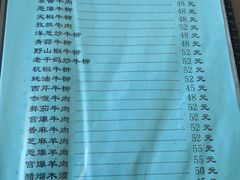 葱爆牛肉 48元
尖椒牛柳 48元
孜然牛肉 52元
洋葱炒牛柳 48元
青蒜牛柳 48元
野山椒牛柳 52元
老干妈炒牛柳 52元
杭椒牛柳 52元
蚝油牛柳 52元
西芹牛柳 45元
咖喱牛肉 48元
鲜茄牛肉 52元
宫爆牛肉 52元
香麻牛肉 52元
芝麻羊肉 52元
葱爆羊肉 55元
宫爆羊肉 55元
醋熘木须 50元